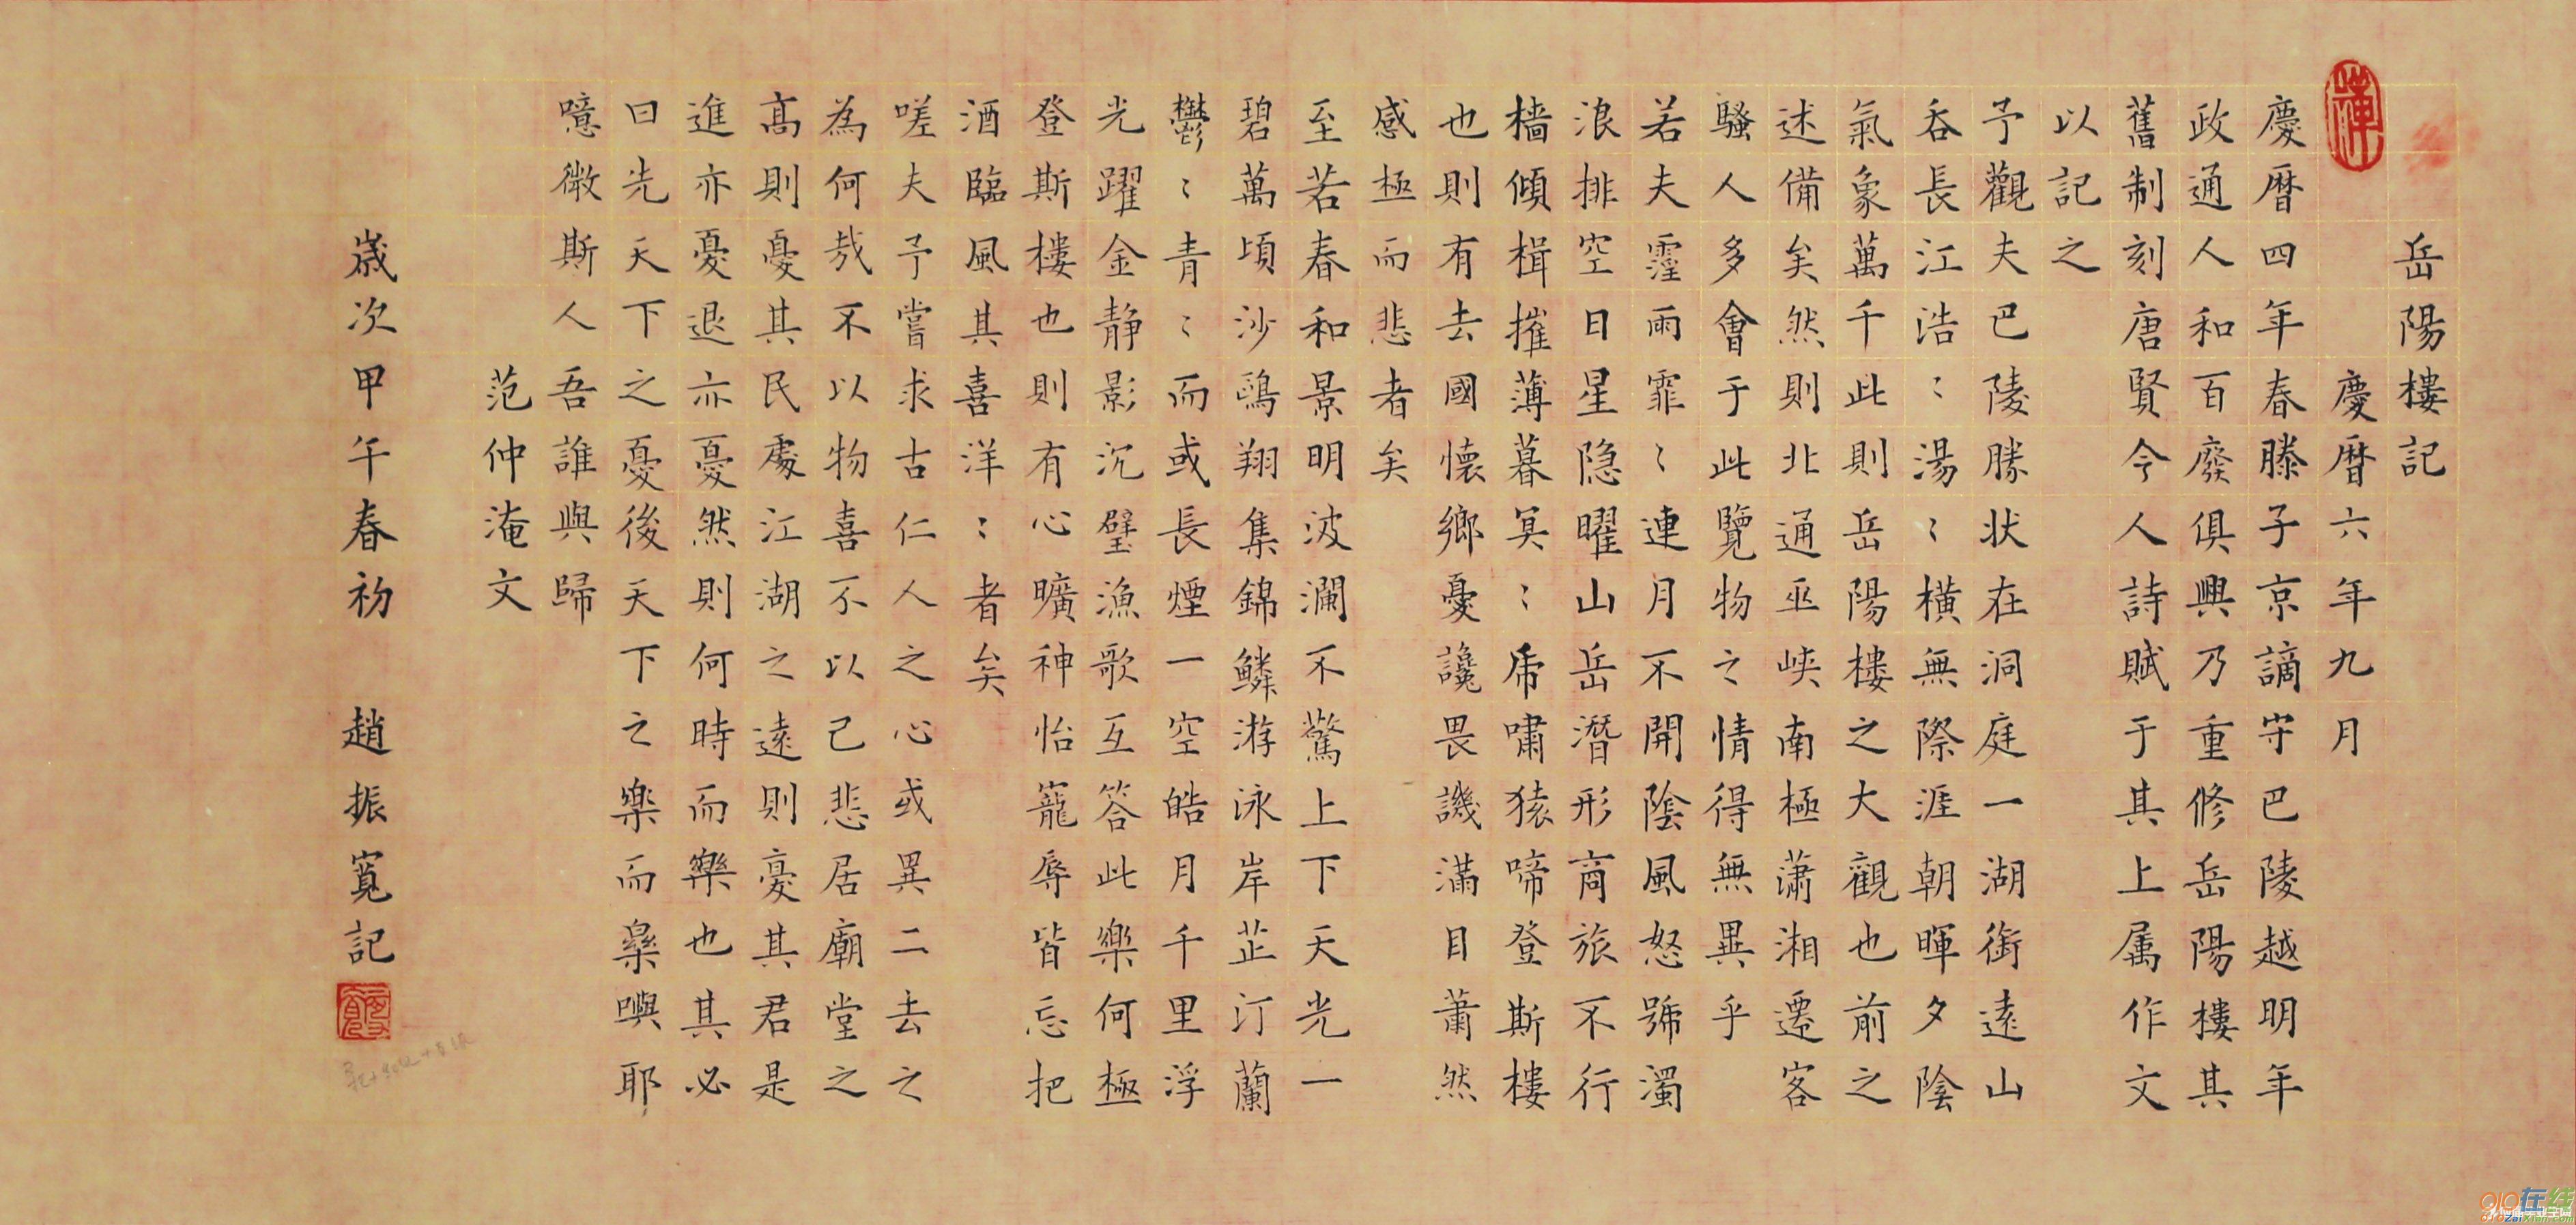 岳陽樓記
慶暦六年九月
慶暦四年春滕子京謫守巴陵越明年
政通人和百廢俱興乃重修岳陽樓其
舊制刻唐賢今人詩賦于其上属作文
以記之
予觀夫巴陵勝状在洞庭一湖銜遠山
吞長江浩〻湯〻橫無際涯朝暉夕陰
氣象萬千此則岳陽樓之大觀也前之
述備矣然則北通巫峽南極瀟湘遷客
騷人多會于此覽物之情得無異乎
若夫霪雨霏〻連月不開陰風怒號濁
浪排空日星隐曜山岳潛形商旅不行
檣傾楫摧薄暮冥〻虎嘯猿啼登斯樓
也則有去國懷鄉憂讒畏譏滿目蕭然
感極而悲者矣
至若春和景明波瀾不驚上下天光一
碧萬頃沙鷗翔集錦鱗游泳岸芷汀蘭
鬱〻青〻而或長煙一空皓月千里浮
光躍金静影沉璧漁歌互答此樂何極
登斯樓也則有心曠神怡寵辱皆忘把
酒臨風其喜洋〻者矣
嗟夫予嘗求古仁人之心或異二去之
為何哉不以物喜不以己悲居廟堂之
高則憂其民處江湖之遠則憂其君是
進亦憂退亦憂然則何時而樂也其必
曰先天下之憂後天下之樂而樂耶
噫微斯人吾誰與歸
范仲淹文
歲次甲午春初 趙振寬記
010在线
ZaiXian.com